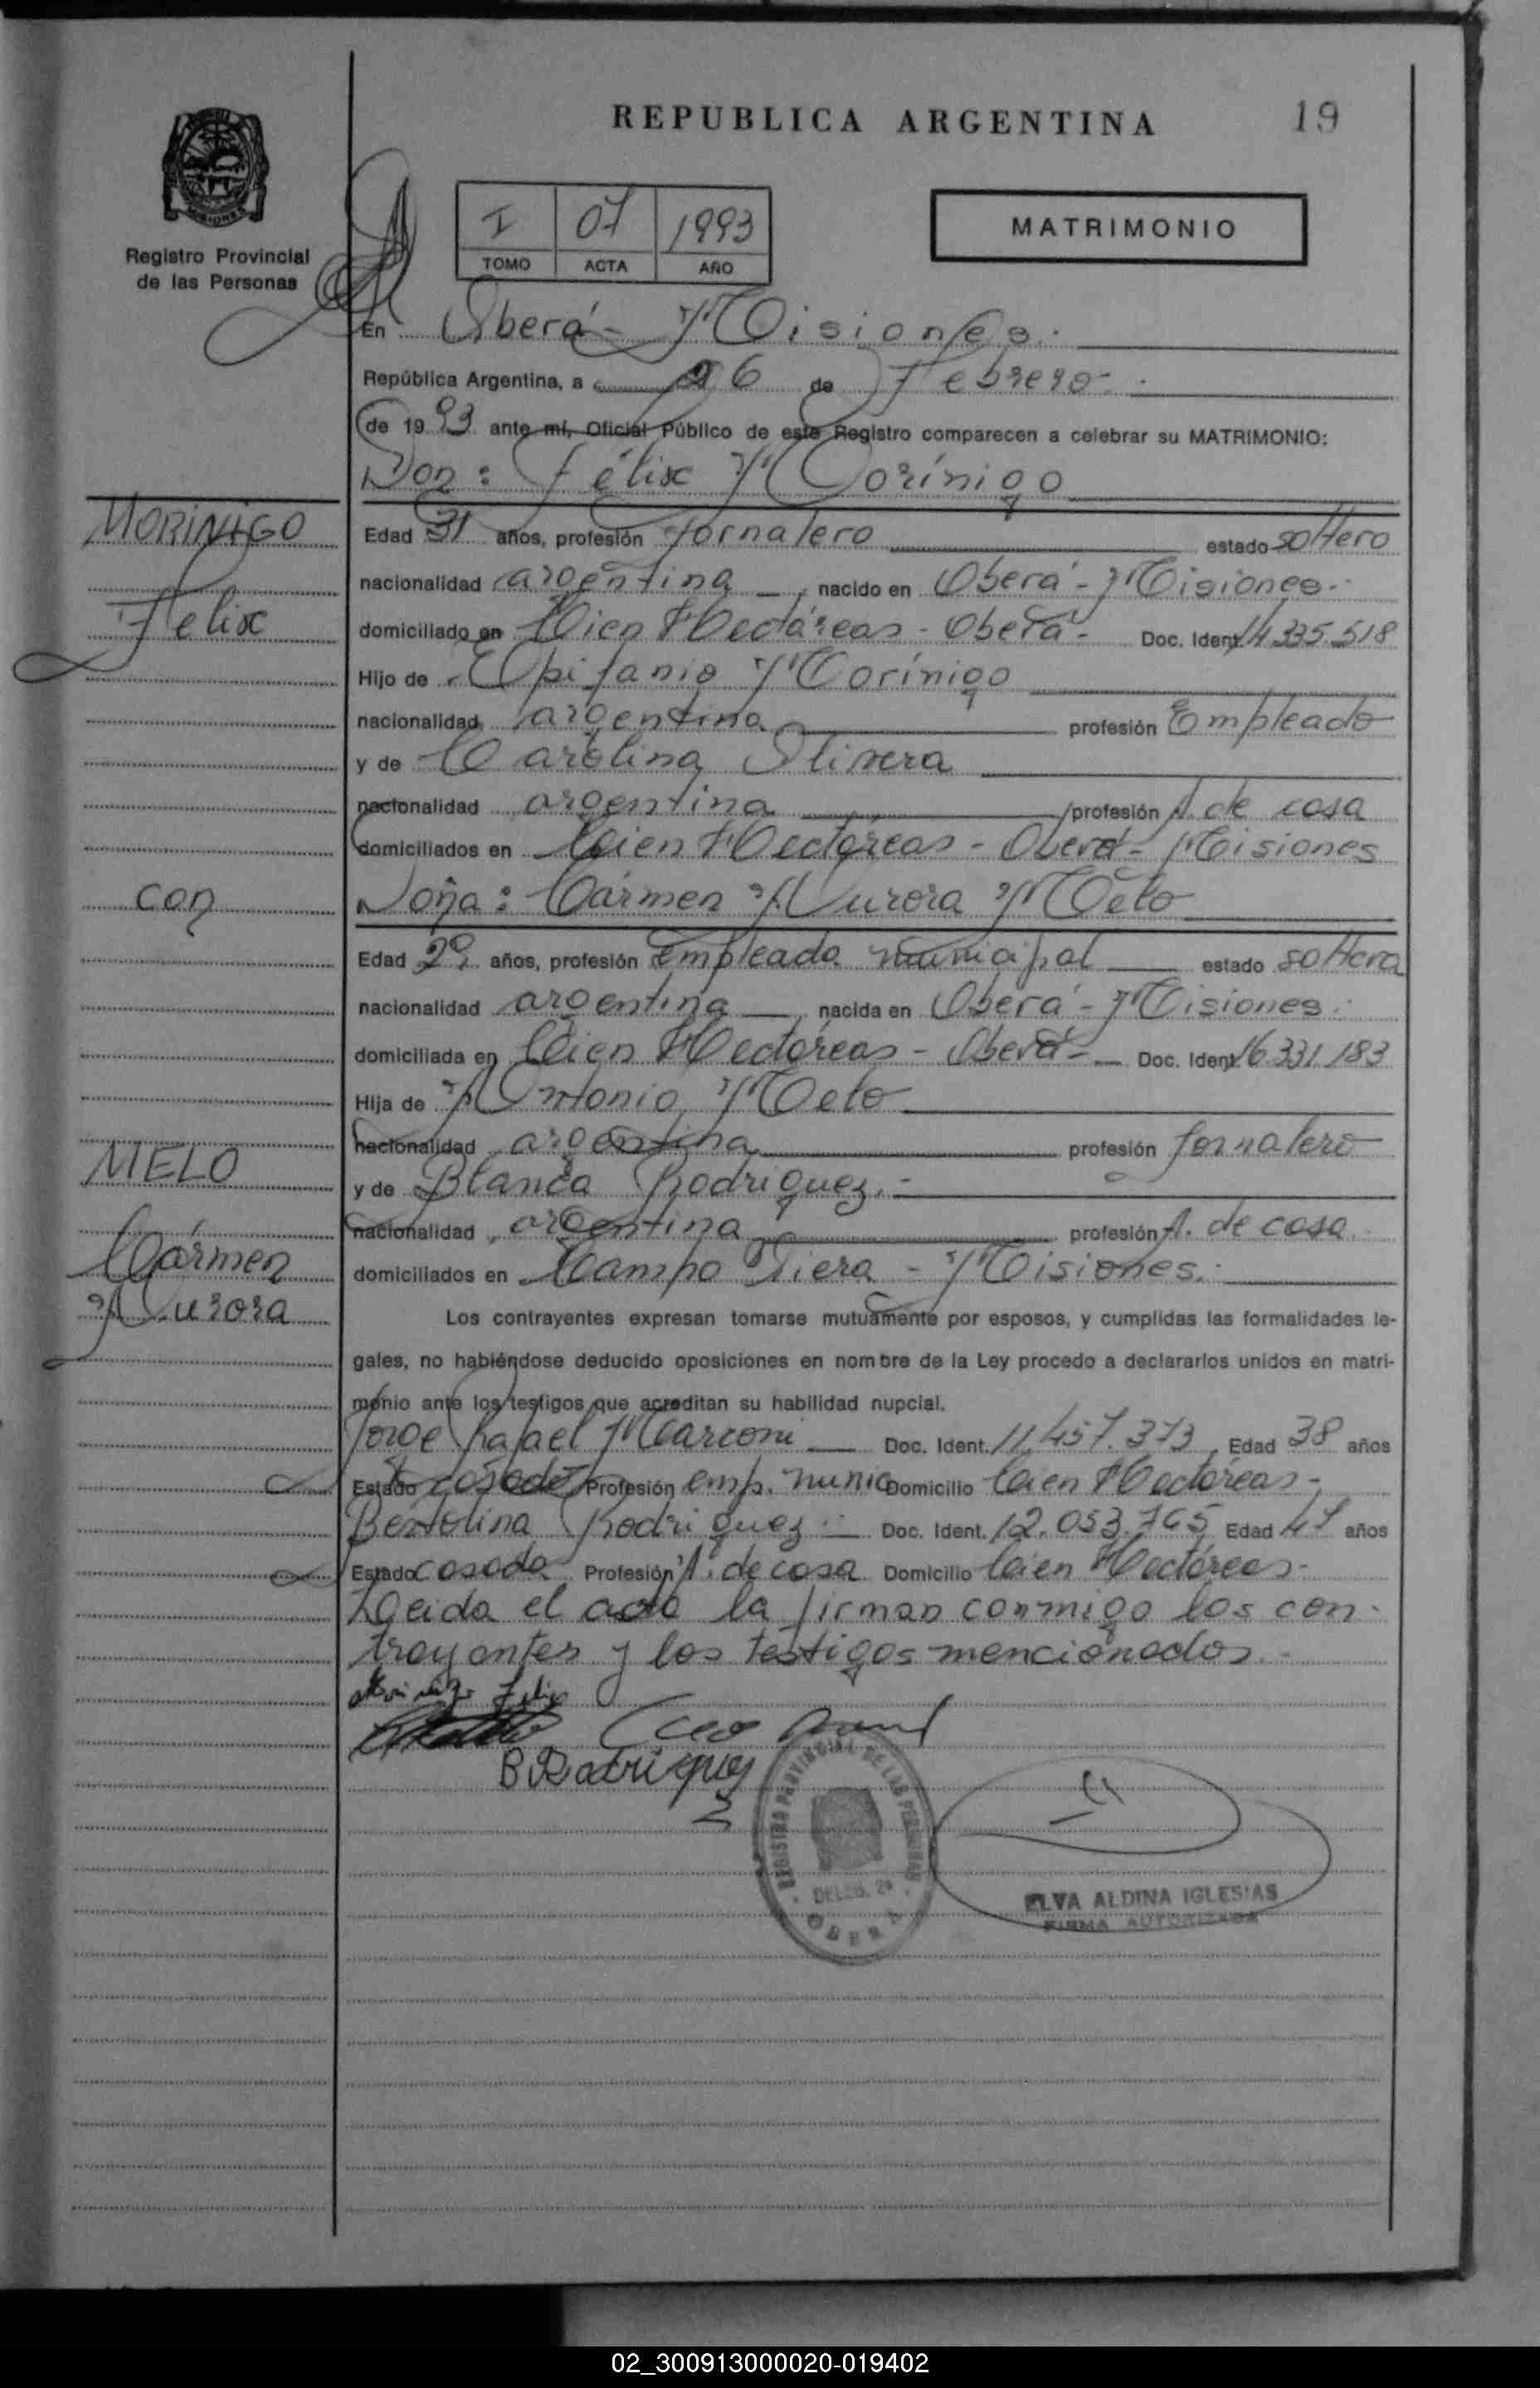 REPUBLICA ARGENTINA
19
Registro Provincial
de las Personas
I 07 1993
TOMO ACTA AÑO
MATRIMONIO
En Oberá - Misiones.
República Argentina, a 26 de Febrero -
de 1993 ante mí, Oficial Público de este Registro comparecen a celebrar su MATRIMONIO:
Don: Félix Morínigo
MORINIGO
Felix
Edad 31 años, profesión jornalero estado soltero
nacionalidad argentina, nacido en Oberá - Misiones.
domiciliado en Cien Hectáreas - Oberá - Doc. Ident. 14.335.518
Hijo de Epifanio Morínigo
nacionalidad argentina profesión Empleado
y de Carolina Olivera
nacionalidad argentina profesión A. de casa
domiciliados en Cien Hectáreas - Oberá - Misiones
con
Doña: Cármen Aurora Melo
Edad 29 años, profesión Empleada municipal estado soltera
nacionalidad argentina, nacida en Oberá - Misiones.
domiciliada en Cien Hectáreas - Oberá - Doc. Ident. 16.331.183
Hija de Antonio Melo
nacionalidad argentina profesión jornalero
MELO
Cármen
Aurora
y de Blanca Rodriguez.-
nacionalidad argentina profesión A. de casa
domiciliados en Campo Viera - Misiones.
Los contrayentes expresan tomarse mutuamente por esposos, y cumplidas las formalidades le-
gales, no habiéndose deducido oposiciones en nombre de la Ley procedo a declararlos unidos en matri-
monio ante los testigos que acreditan su habilidad nupcial.
Jorge Rafael Marconi Doc. Ident. 11.457.373 Edad 38 años
Estado casado Profesión emp. munic Domicilio Cien Hectáreas -
Bertolina Rodriguez Doc. Ident. 12.053.765 Edad 47 años
Estado casada Profesión A. de casa Domicilio Cien Hectáreas -
Leida el acta la firman conmigo los con-
trayentes y los testigos mencionados.-
Felix
B Rodriguez
REGISTRO PROVINCIAL DE LAS PERSONAS
DELEG. 2ª
OBERA
ELVA ALDINA IGLESIAS
FIRMA AUTORIZADA
02_300913000020-019402